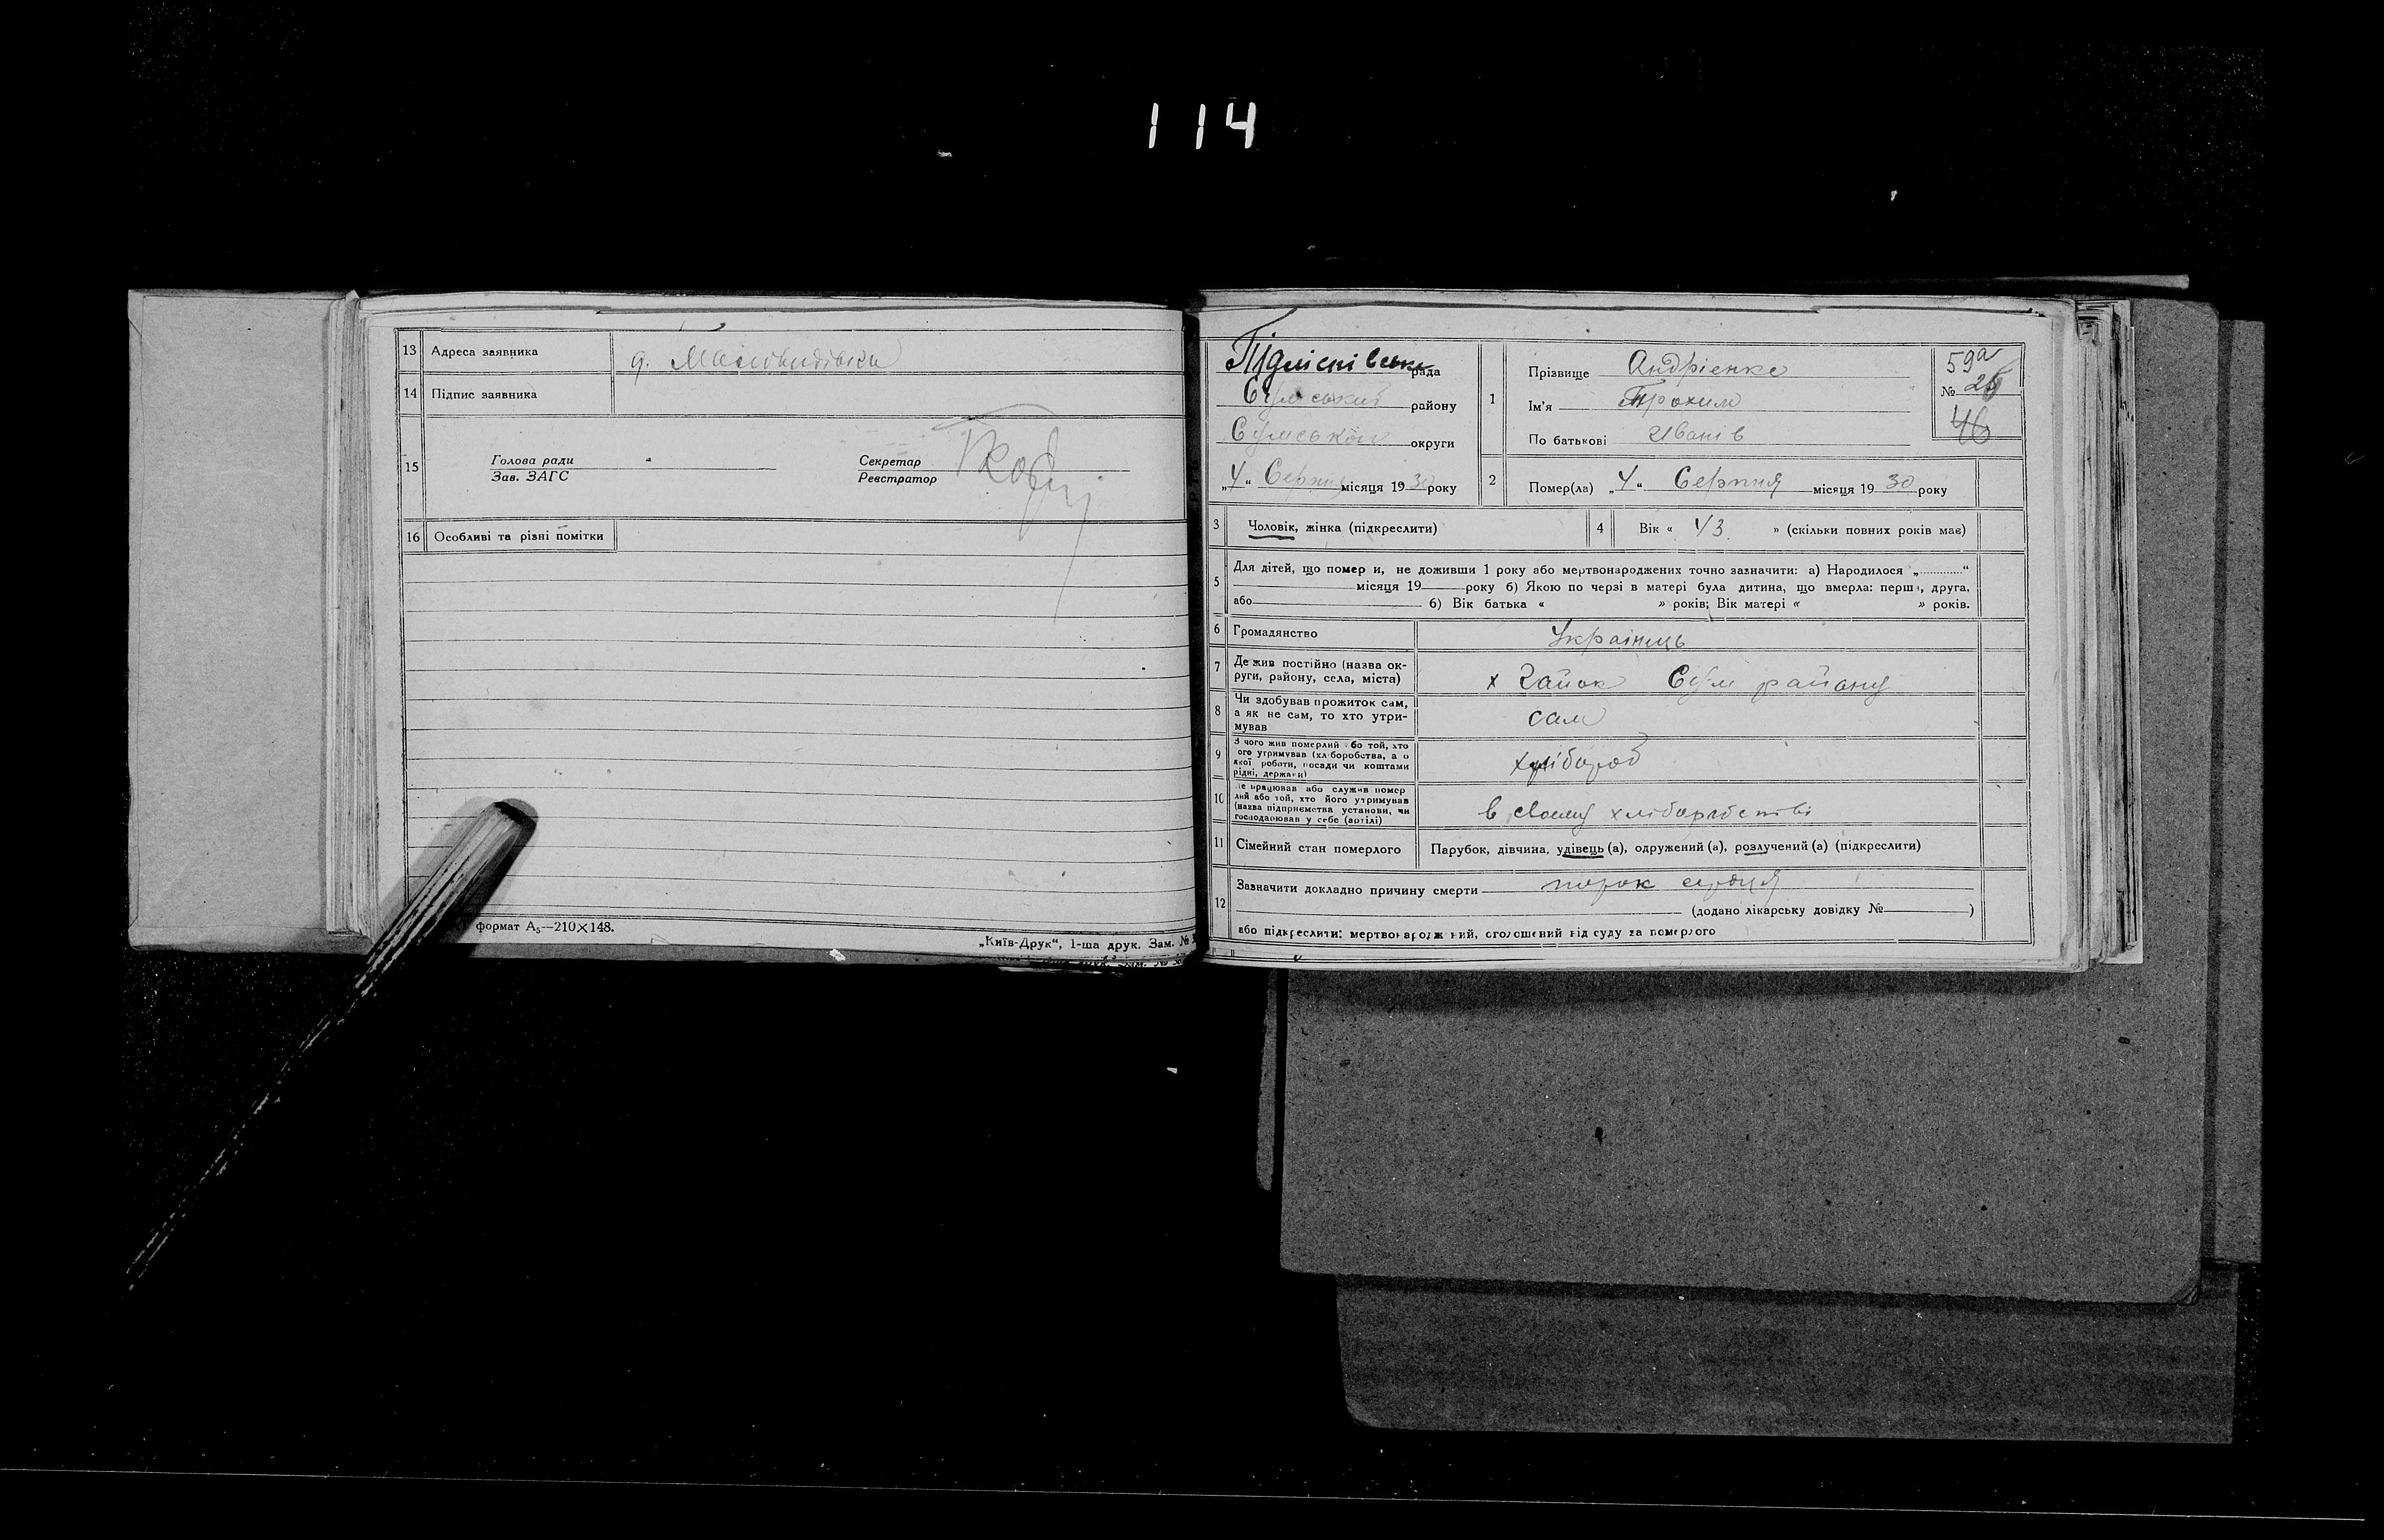 114
13 Адреса заявника
14 Підпис заявника
15 Голова ради
Зав. ЗАГС
Секретар
Реєстратор
16 Особливі та різні помітки
формат А5—210×148.
„Київ-Друк“, 1-ша друк. Зам. №
Підліснівська рада
Сумський району
Сумської округи
„4“ Серпня місяця 1930 року
1 Прізвище Андрієнко
Ім'я Трохим
По батькові Иванів
59а
№
46
2 Помер(ла) „4“ Серпня місяця 1930 року
3 Чоловік, жінка (підкреслити)
4 Вік « 43 » (скільки повних років має)
5 Для дітей, що помер и, не доживши 1 року або мертвонароджених точно зазначити: а) Народилося „............“
місяця 19 року б) Якою по черзі в матері була дитина, що вмерла: перш, друга,
або б) Вік батька « » років; Вік матері « » років.
6 Громадянство Українець
7 Де жив постійно (назва ок-
руги, району, села, міста) х Гайок Сум району
8 Чи здобував прожиток сам,
а як не сам, то хто утри-
мував сам
9 З чого жив померлий або той, хто
ого утримував (хліборобства, а о
якої роботи, посади чи коштами
рідні, держави) хлібороб
10 Де працював або служив помер
лий або той, хто його утримував
(назва підприємства установи, чи
господарював у себе (артілі) в своему хліборобстві
11 Сімейний стан померлого Парубок, дівчина, удівець (а), одружений (а), розлучений (а) (підкреслити)
12 Зазначити докладно причину смерти порок сердця
(додано лікарську довідку № )
або підкреслити: мертвонароджений, оголошений від суду за померлого